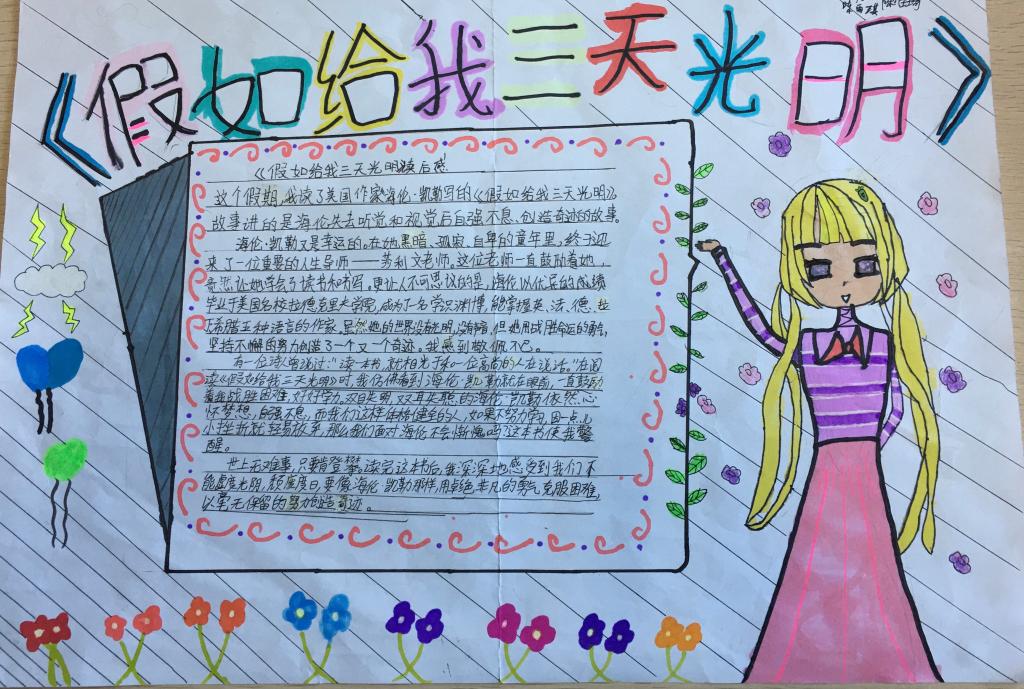 《假如给我三天光明》
《假如给我三天光明读后感
这个假期,我读了美国作家海伦·凯勒写的《假如给我三天光明》,
故事讲的是海伦失去听觉和视觉后自强不息、创造奇迹的故事。
海伦·凯勒又是幸运的。在她黑暗、孤寂、自卑的童年里,终于迎
来了一位重要的人生导师——莎利文老师,这位老师一直鼓励着她,
让她学会了读书和书写,更让人不可思议的是,海伦以优异的成绩
毕业于美国名校拉德克里夫学院,成为了一名学识渊博,能掌握英、法、德、
希腊五种语言的作家,虽然她的世界没有光明,
坚持不懈的努力创造了一个又一个奇迹。我感到敬佩不已。
有一位诗人曾说过:“读一本书,就相当于和一个高尚的人在说话。”在阅
读《假如给我三天光明》时,我仿佛看到海伦·凯勒就在眼前,一直鼓励
着我战胜困难,好好学习,双目失明、双耳失聪的海伦·凯勒依然心
怀梦想,自强不息,而我们这样体格健全的人,如果不努力学习,因一点儿
小挫折就轻易放弃,那么我们面对海伦不会惭愧吗?这本书使我警
醒。
世上无难事,只要肯登攀。读完这本书后,我深深地感受到我们不
能虚度光阴,要像海伦·凯勒那样,用卓绝非凡的勇气,克服困难,
以毫无保留的努力创造奇迹。